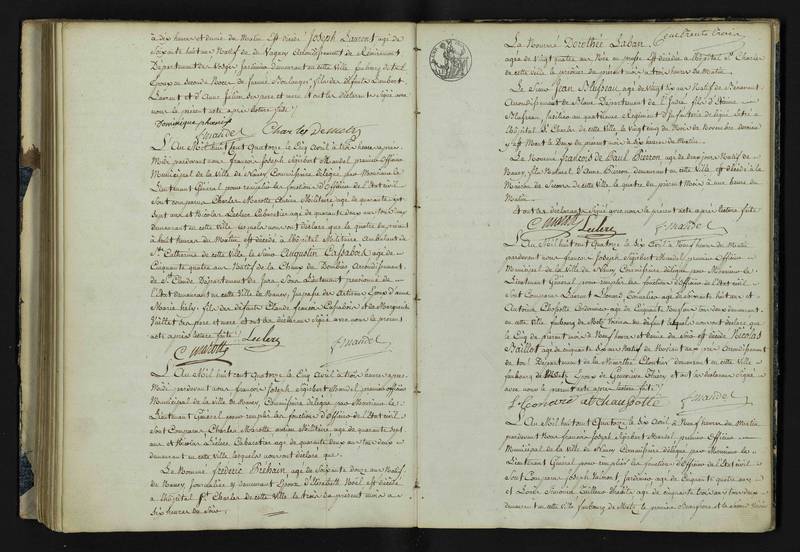 à dix heures et demie du matin Est décédé Joseph Laurent agé de
soixante huit ans Natif de de Vagney Arrondissement de Remiremont
Département des Vosges Jardinier demeurant en cette ville faubourg de
Epoux en seconde Noces de Jeanne Boulanger, fils de défunts
Laurent et d'Anne ses pere et mere et ont les déclarants signé avec
nous le présent acte après lecture faite
Dominique
Mandel Charles
L'An Mil huit Cent Quatorze le Cinq Avril à trois heures après
Midi pardevant nous françois Joseph Sigisbert Mandel premier officier
Municipal de la Ville de Nancy Commissaire délégué par Monsieur le
Lieutenant Général pour remplir les fonctions d'Officier de l'Etat civil
sont comparus Charles Marotte Ancien Militaire agé de quarante sept
ans et Nicolas Leclerc Cabaretier agé de quarante deux ans tous deux
demeurant en cette ville lesquels nous ont déclaré que le quatre du présent
à huit heures du Matin est décédé à l'hôpital Militaire Ambulant de
Ste Catherine de cette ville, le Sieur Augustin Cassabois agé de
Cinquante quatre ans Natif de la Chaux du Dombief Arrondissement
de St Claude Département du Jura Sous Lieutenant pensionné de
l'Etat demeurant en cette ville de Nancy, Epoux d'anne
Marie fils des défunts Claude françois Cassabois et de Marguerite
ses pere et mere et ont les déclarans signé avec nous le présent
acte après lecture faite
C Marotte Leclerc Mandel
L'An Mil huit cent Quatorze le Cinq Avril à trois heures après
Midi pardevant nous françois Joseph Sigisbert Mandel premier officier
Municipal de la Ville de Nancy, Commissaire délégué par Monsieur le
Lieutenant Général pour remplir les fonctions d'Officier de l'Etat civil
sont Comparus Charles Marotte ancien Militaire agé de quarante sept
ans et Nicolas Leclerc Cabaretier agé de quarante deux ans tous deux
demeurant en cette ville, lesquels nous ont déclaré que
Le Nommé fréderic Bichain, agé de Soixante douze ans Natif
de Nancy, Journalier y demeurant Epoux d'Elisabeth Noël est décédé
à l'hôpital St Charles de cette Ville le trois du présent mois à
six heures du Soir,
La Nommée Dorothée Laban
agée de vingt quatre ans Née en Prusse Est décédée à l'hôpital St Charles
de cette ville le premier du présent mois à trois heures du Matin
Le Sieur Jean agé de vingt six ans Natif de
Arrondissement du Blanc Département de l'Indre fils d'Etienne
fusilier au quatrieme Regiment d'Infanterie de ligne, Entré à
l'hôpital St Charles de cette Ville le vingt cinq du Mois de Novembre dernier
y est Mort le Deux du présent mois à six heures du Matin
Le Nommé francois de Paul Pierron, agé de deux jours Natif de
Nancy, fils Naturel d'Anne Pierron demeurant en cette Ville est décédé à la
Maison de Secours de cette ville, le quatre du présent Mois à une heure du
Matin
et ont les déclarans Signé avec nous le présent acte après lecture faite
C Marotte Leclerc Mandel
L'An Mil huit cent Quatorze le Six Avril à Neuf heures du Matin
pardevant nous françois Joseph Sigisbert Mandel premier Officier
Municipal de la Ville de Nancy Commissaire délégué par Monsieur le
Lieutenant Général pour remplir les fonctions d'Officier de l'Etat civil
sont Comparus Laurent Léonard Cordonnier agé de soixante huit ans et
Antoine Chapotte Cordonnier agé de Cinquante Neuf ans tous deux demeurant
en cette ville faubourg de Metz Voisins du défunt lesquels nous ont déclaré que
le Cinq du présent mois à heures du Soir est décédé Nicolas
Baillot agé de cinquante six ans Natif de Arrondissement
de Toul Département de la Meurthe, Cloutier demeurant en cette ville
faubourg de Metz, Epoux de Genevieve et ont les déclarans signé
avec nous le présent acte après lecture faite
L Leonard at chaupotte Mandel
L'An Mil huit cent Quatorze le Six Avril à Neuf heures du Matin
pardevant nous françois Joseph Sigisbert Mandel premier Officier
Municipal de la Ville de Nancy Commissaire délégué par Monsieur le
Lieutenant Général pour remplir les fonctions d'Officier de l'Etat civil
sont Comparus Joseph Jardinier agé de Cinquante quatre ans
et Louis Tailleur agé de cinquante trois ans tous deux
demeurant en cette Ville faubourg de Metz, le premier et le second